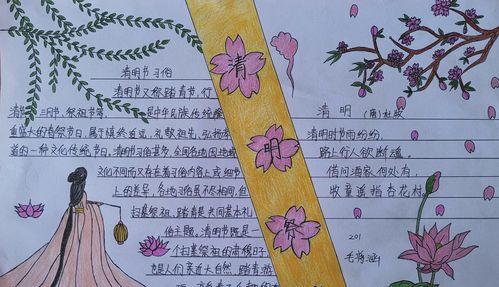 清明节习俗
清明节又称踏青节、行
清
三月节、祭祖节等,
是中华民族传统
重盛大的春祭节日,属于慎终追远、礼敬祖先、弘扬
道的一种文化传统节日。清明节习俗甚多,全国各地因地域
文化不同而又存在着习俗内容上或细节
上的差异,各地习俗虽不尽相同,但
扫墓祭祖、踏青是共同基本礼
俗主题。清明节既是一
个扫墓祭祖的肃穆日子
也是人们亲近大自然、踏青游
清
明
节
清明
(唐)杜牧
清明时节雨纷纷,
路上行人欲断魂。
借问酒家何处有
牧童遥指杏花村
201